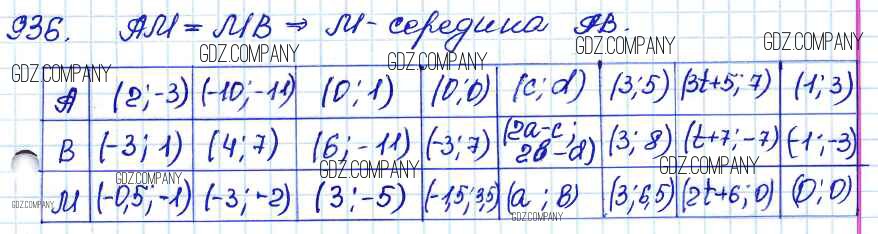 936. AM = MB ⇒ M - середина AB.
GDZ.COMPANY GDZ.COMPANY GDZ.COMPANY GDZ.COMPANY GDZ.COMPANY
A (2;-3) (-10;-11) (0;1) (0;0) (c;d) (3;5) (3t+5;7) (1;3)
B (-3;1) (4;7) (6;-11) (-3;7) (2a-c; 2b-d) (3;8) (t+7;-7) (-1;-3)
GDZ.COMPANY GDZ.COMPANY GDZ.COMPANY
M (-0,5;-1) (-3;-2) (3;-5) (-1,5;3,5) (a;b) (3;6,5) (2t+6;0) (0;0)
GDZ.COMPANY GDZ.COMPANY